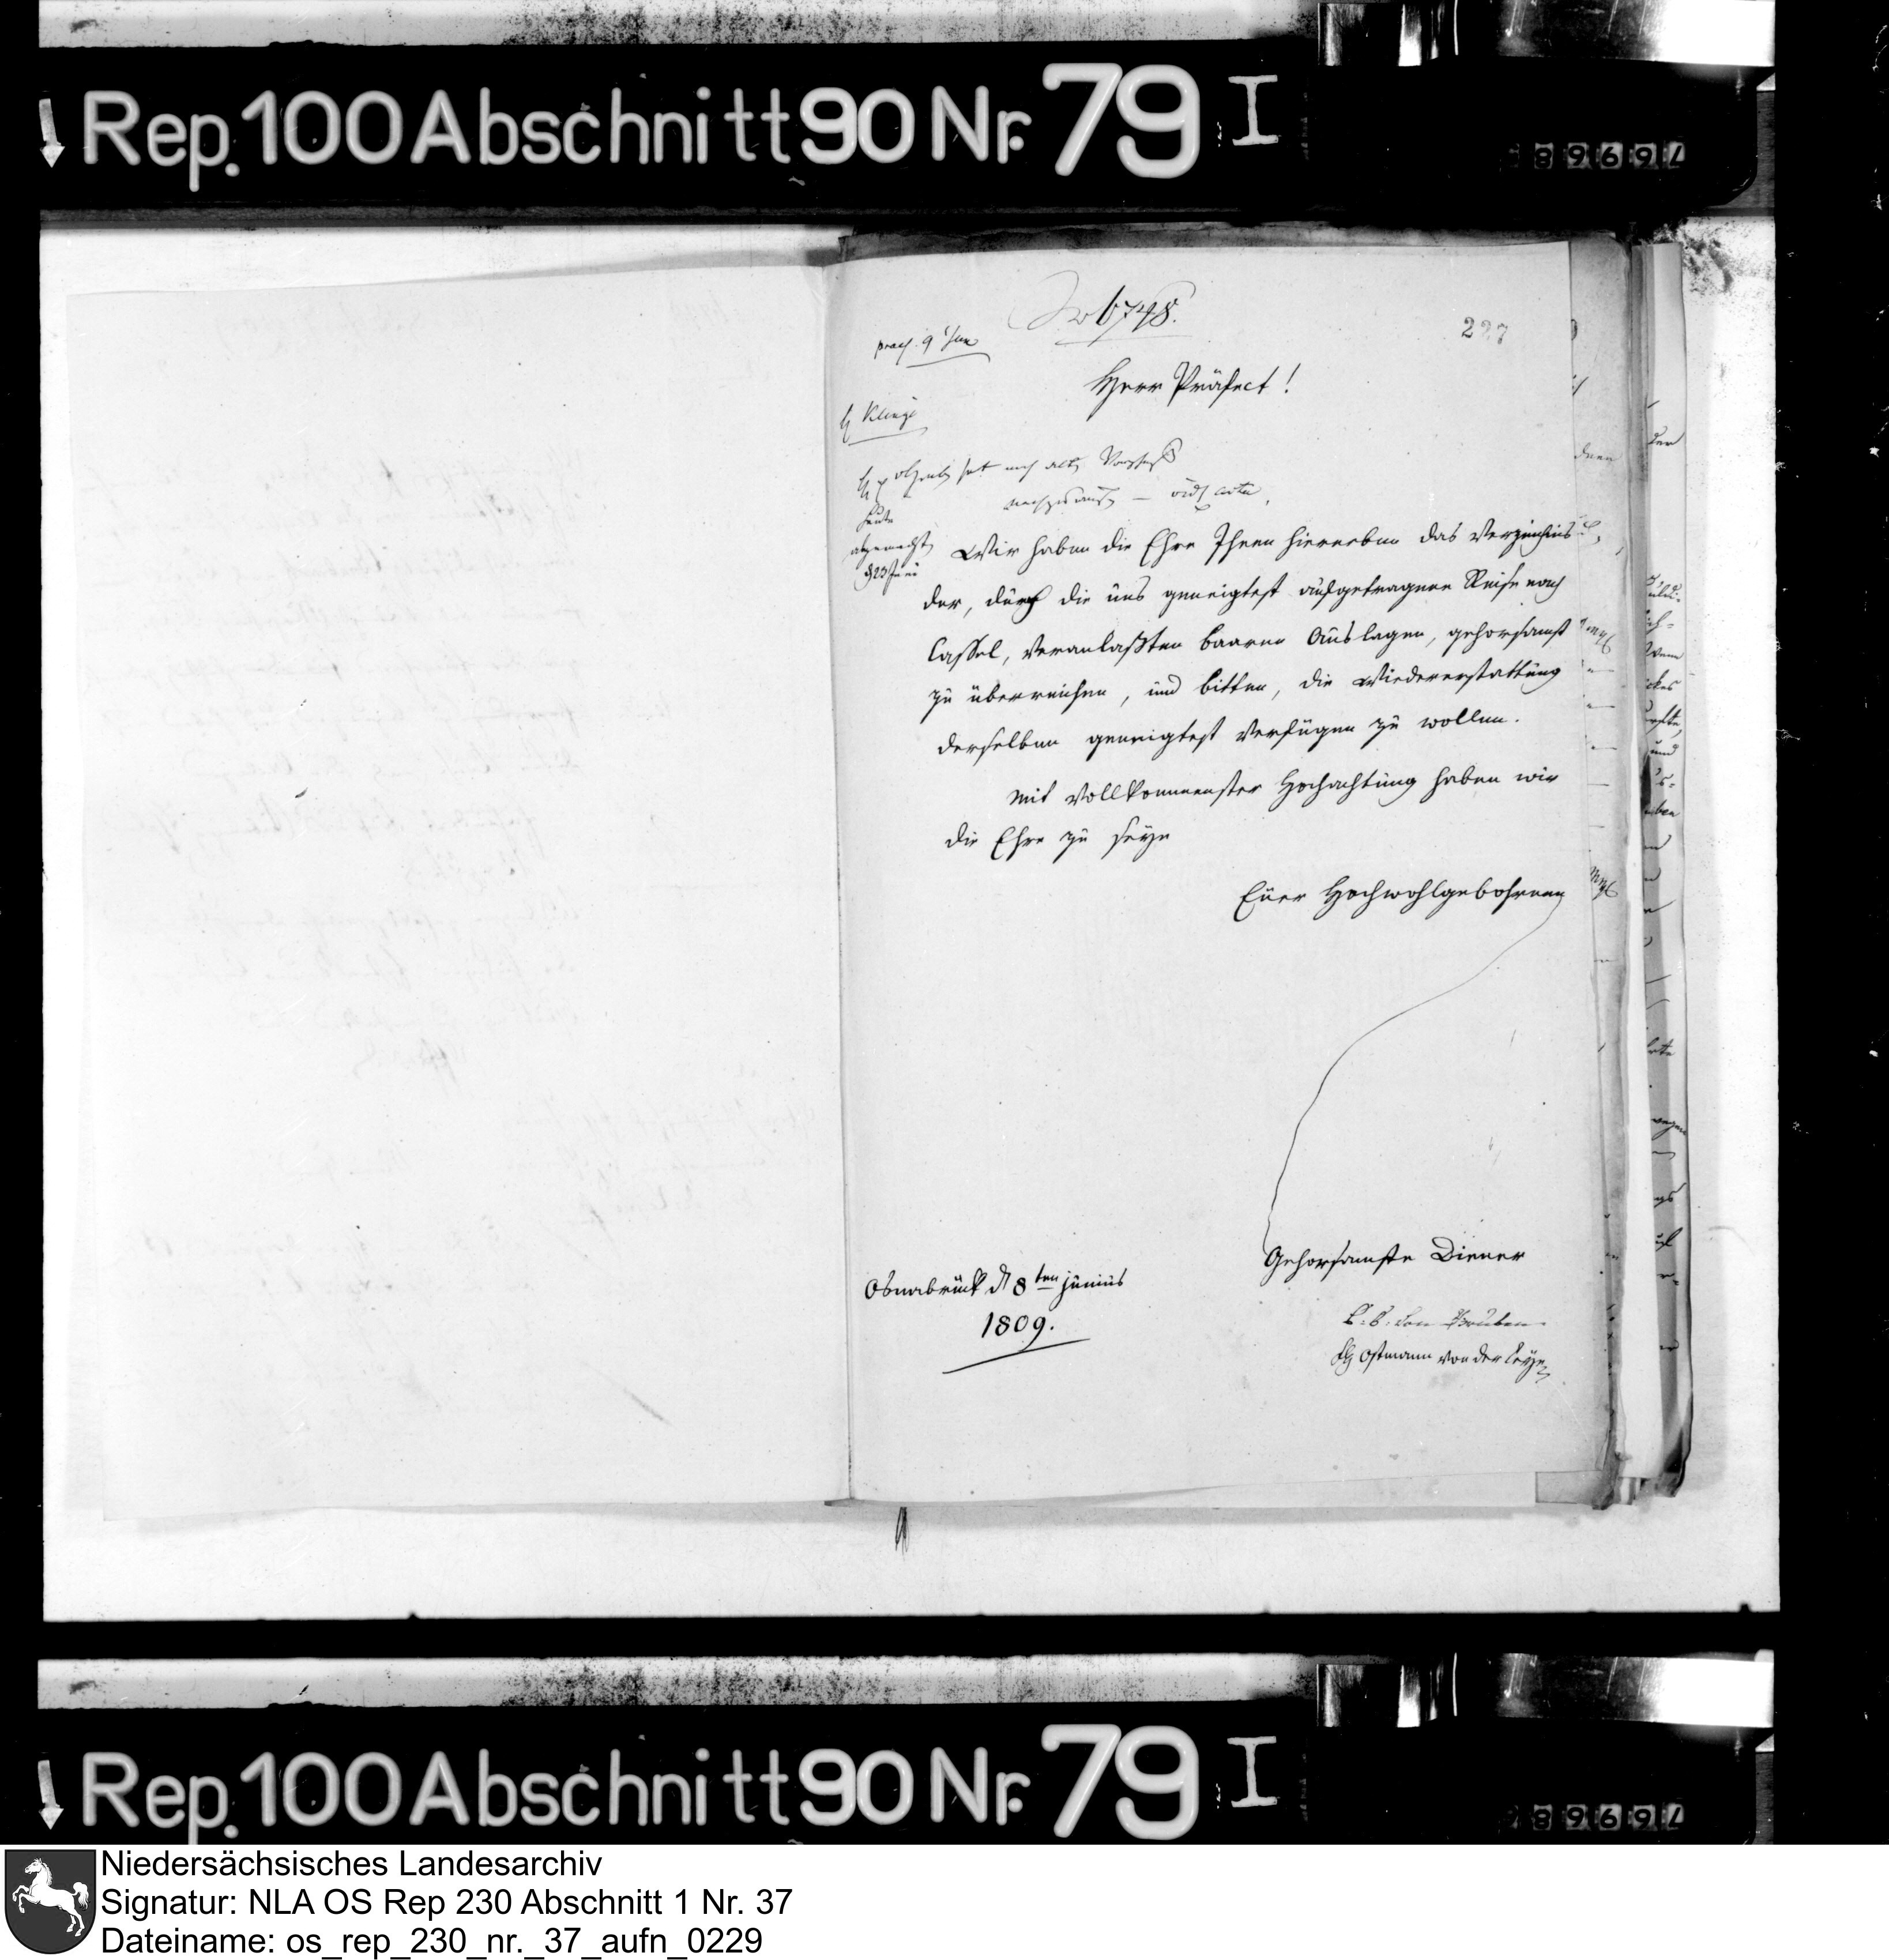 Rep. 100 Abschnitt 90 Nr. 79 I
89697
No 6748.
praes. 9 Jun
227
Herr Präfect!
H Klinge
heute
abgemacht
d 23 Juni
Wir haben die Ehre Ihnen hierneben das Verzeichnis
der, durch die uns geneigtest aufgetragene Reise nach
Cassel, veranlaßten baaren Auslagen, gehorsamst
zu überreichen, und bitten, die Wiedererstattung
derselben geneigtest verfügen zu wollen.
Mit vollkommenster Hochachtung haben wir
die Ehre zu seyn
Euer Hochwohlgebohren
Gehorsamste Diener
Osnabrück d 8ten junius
1809.
von Gruben
Ostmann von der Leye
Rep. 100 Abschnitt 90 Nr. 79 I
89697
Niedersächsisches Landesarchiv
Signatur: NLA OS Rep 230 Abschnitt 1 Nr. 37
Dateiname: os_rep_230_nr._37_aufn_0229